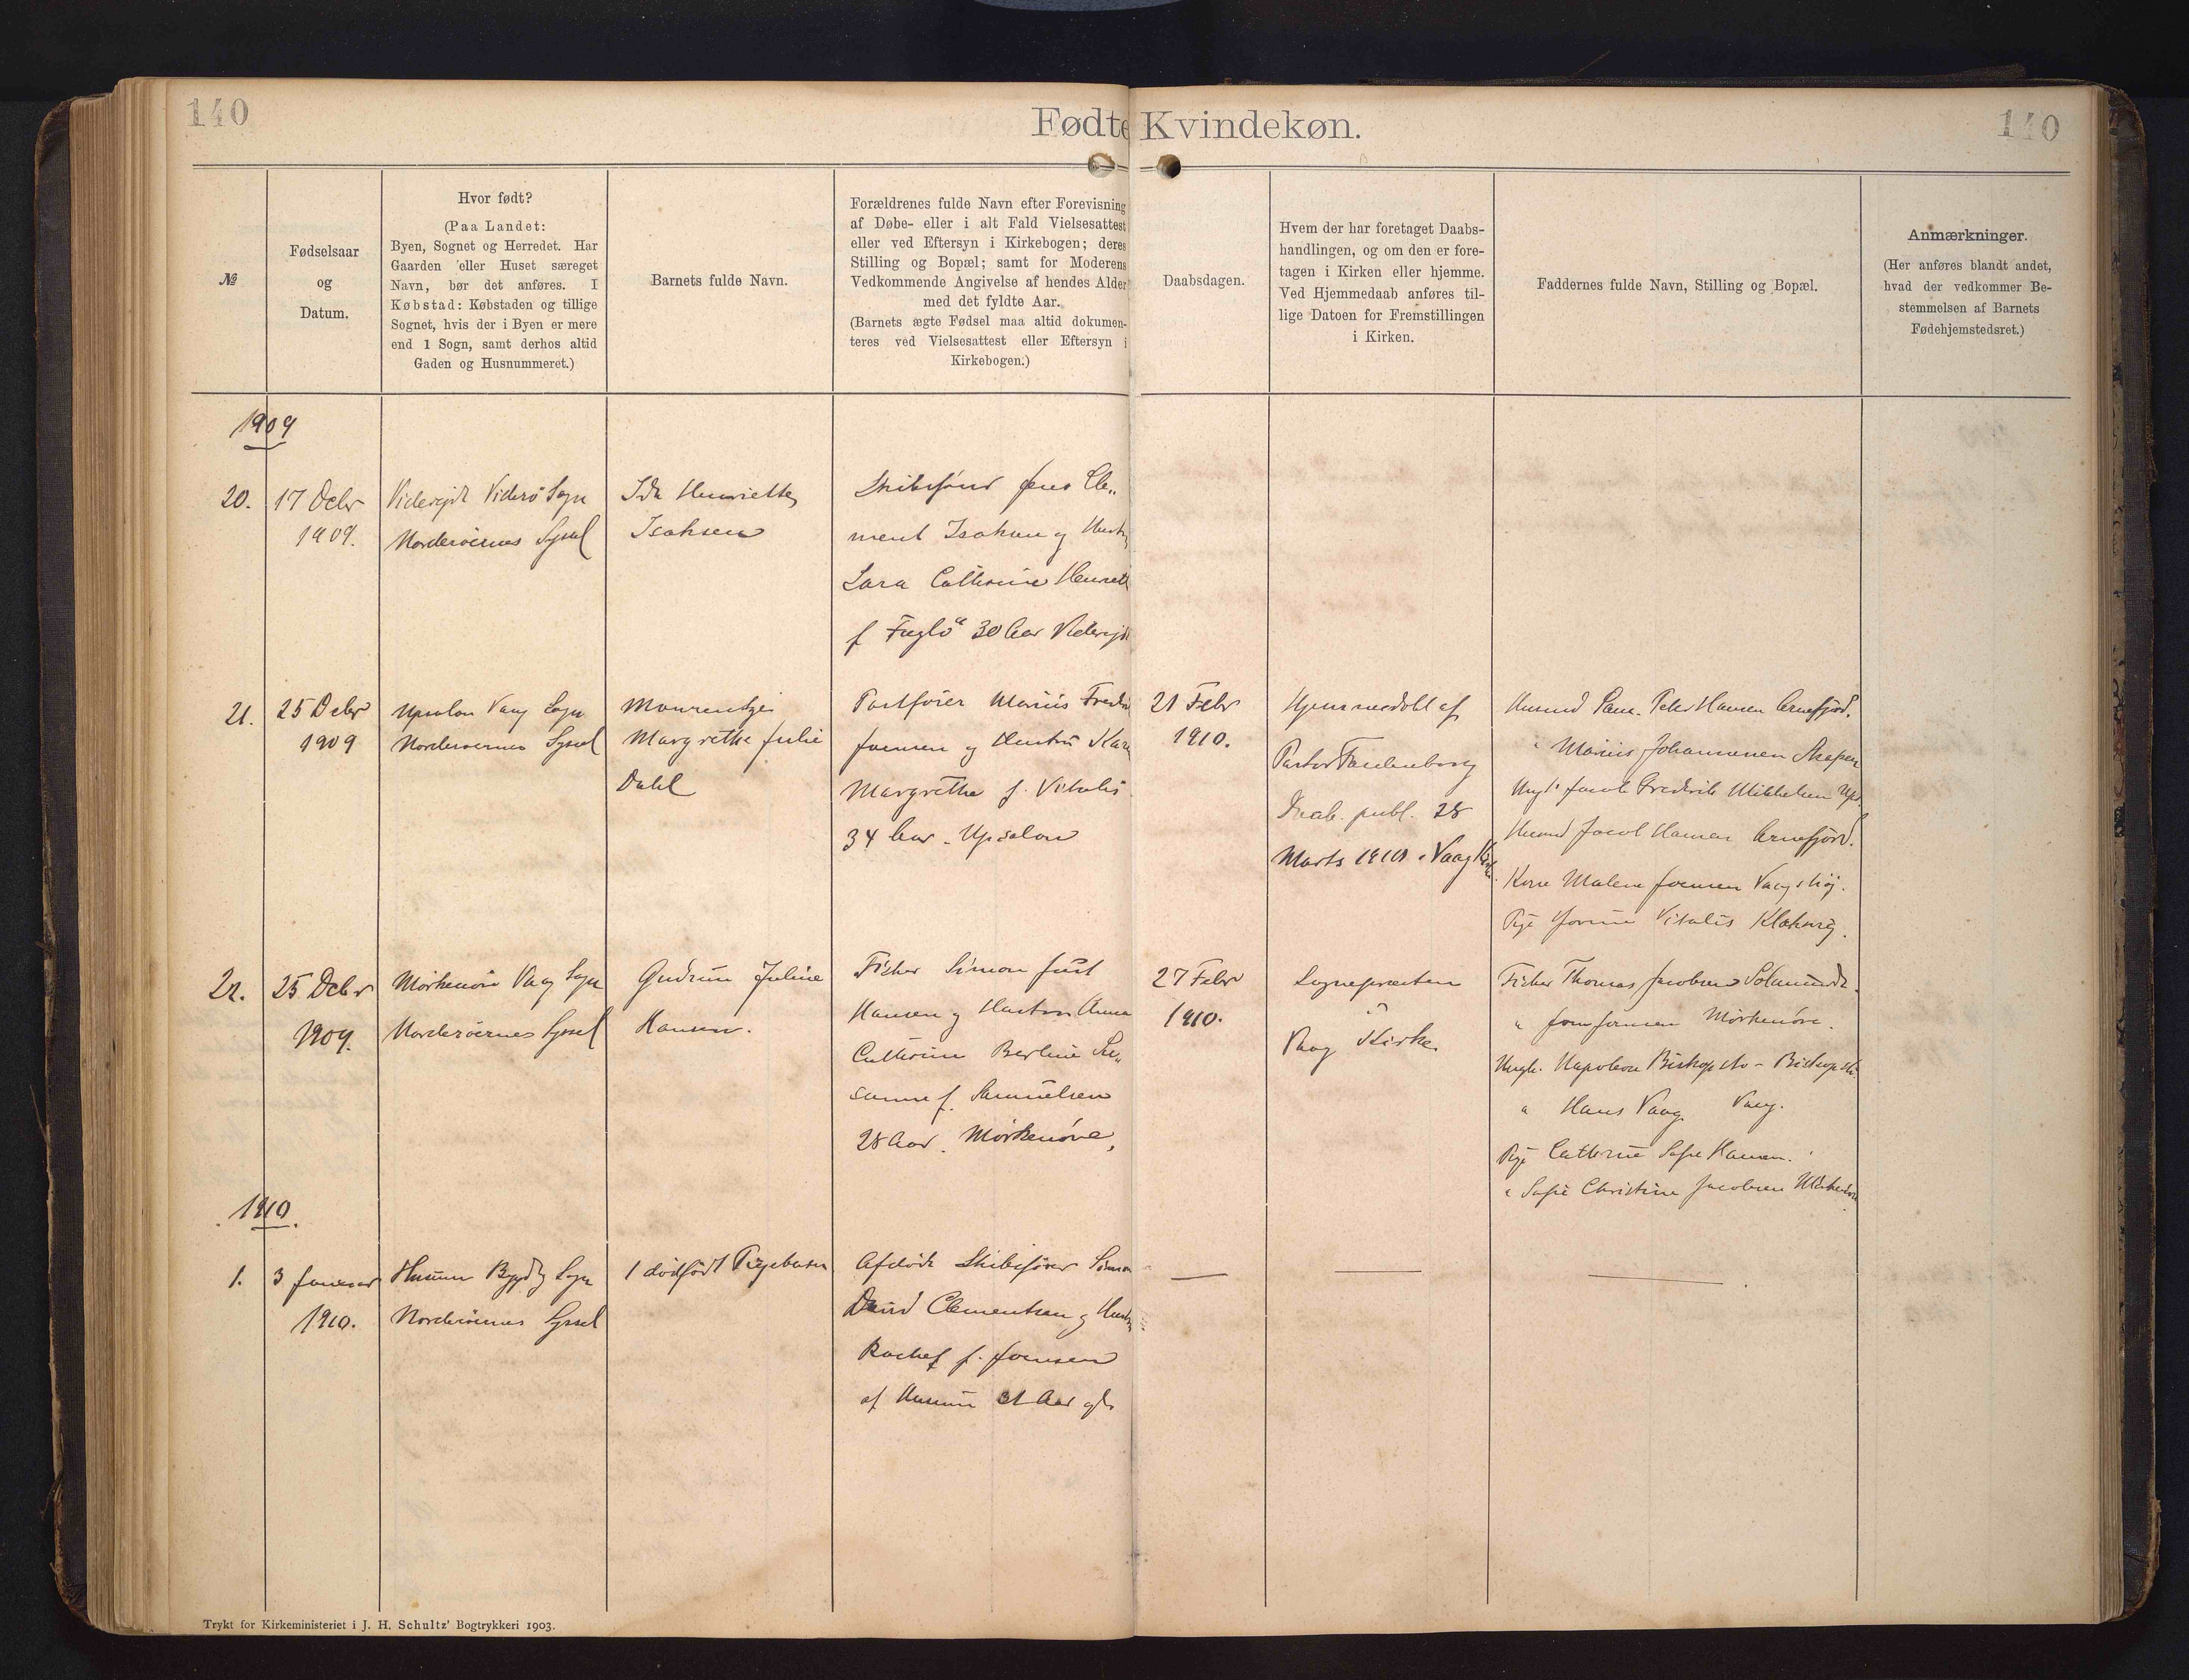 140
Fødte Kvindekøn.
140
№
Fødselsaar
og
Datum.
Hvor født?
(Paa Landet:
Byen, Sognet og Herredet. Har
Gaarden eller Huset særeget
Navn, bør det anføres. I
Købstad: Købstaden og tillige
Sognet, hvis der i Byen er mere
end 1 Sogn, samt derhos altid
Gaden og Husnummeret.)
Barnets fulde Navn.
Forældrenes fulde Navn efter Forevisning
af Døbe- eller i alt Fald Vielsesattest
eller ved Eftersyn i Kirkebogen; deres
Stilling og Bopæl; samt for Moderens
Vedkommende Angivelse af hendes Alder
med det fyldte Aar.
(Barnets ægte Fødsel maa altid dokumen-
teres ved Vielsesattest eller Eftersyn i
Kirkebogen.)
Daabsdagen.
Hvem der har foretaget Daabs-
handlingen, og om den er fore-
tagen i Kirken eller hjemme.
Ved Hjemmedaab anføres til-
lige Datoen for Fremstillingen
i Kirken.
Faddernes fulde Navn, Stilling og Bopæl.
Anmærkninger.
(Her anføres blandt andet,
hvad der vedkommer Be-
stemmelsen af Barnets
Fødehjemstedsret.)
1909
20.
17 Debr
1909.
Viderejde Viderø Sogn
Norderøernes Syssel
Ida Henriette
Isaksen
Skibsfører Jens Cle„
ment Isaksen og Hustru
Sara Cathrine Henriett
f Fuglø 30 Aar Viderejde
21.
25 Debr
1909
Upsalon Vaag Sogn
Norderøernes Syssel
Maurentze
Margrethe Julie
Dahl
Postfører Marius Fredri
Joensen og Hustru Kar
Margrethe f. Vitalis
34 Aar. Upsalon
21 Febr
1910.
Hjemmedøbt af
Pastor
Daab. publ. 28
Marts 1910 i Vaag Kirke
Husmd Peter Hansen Arnefjord.
" Marius Johannesen Skapen
Ungk Jacob Frederik Mikkelsen Ups.
Husmd Jacob Hansen Arnefjord.
Kone Malene Joensen Vaagshøj.
Pige Vitalis Klaksvig.
22.
25 Debr
1909.
Mørkenøre Vaag Sogn
Norderøernes Syssel
Gudrun Juline
Hansen.
Fisker Simon Just
Hansen og Hustru Anna
Cathrine Berline Su„
sanne f. Samuelsen
28 Aar. Mørkenøre,
27 Febr
1910.
Sognepræsten
i
Vaag Kirke
Fisker Thomas Jacobsen
" Joensen Mørkenøre.
Ungk. Napoleon Biskopstø - Biskopstø
" Hans Vaag Vaag.
Pige Cathrine Sofie Hansen.
" Sofie Christine Jacobsen Mørkenøre
1910.
1.
3 Januar
1910.
Husum Bygdø Sogn
Norderøernes Syssel
1 dødfødt Pigebarn
Afdøde Skibsfører Simon
David Clementsen og Hustru
Rachel f. Joensen
af Husum 31 Aar gl.
Trykt for Kirkeministeriet i J. H. Schultz' Bogtrykkeri 1903.